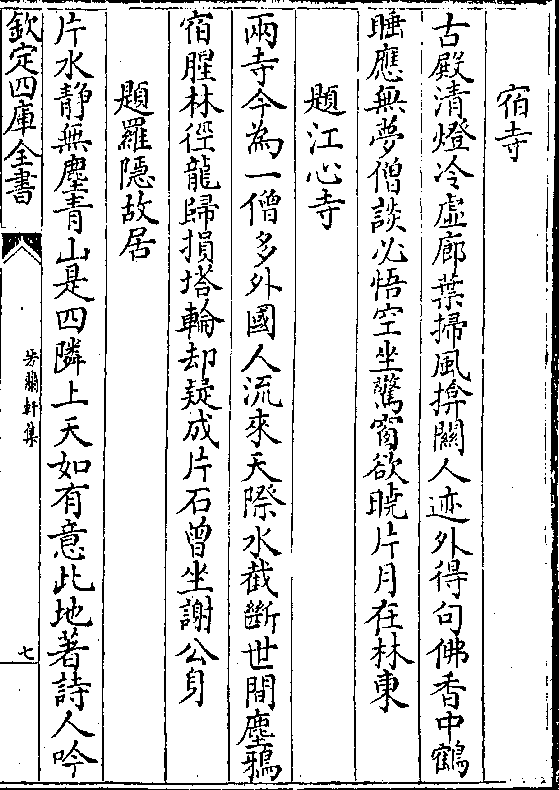 宿寺
古殿清燈冷虛廊葉掃風掩關人迹外得句佛香中鶴
睡應無夢僧談必悟空坐驚窗欲曉片月在林東
題江心寺
兩寺今為一僧多外國人流來天際水截斷世間塵鴉
宿腥林徑龍歸損塔輪却疑成片石曾坐謝公身
題羅隱故居
片水靜無塵青山是四隣上天如有意此地著詩人吟
欽定四庫全書
芳蘭軒集
七